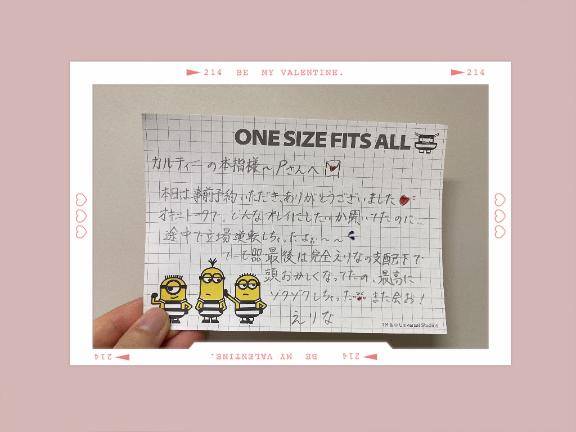 214 BE MY VALENTINE. 214
ONE SIZE FITS ALL
カルティニの本指様 Pさんへ
本日は事前予約いただき、ありがとうございました
オキニトークで、どんなオレイにしたいか聞いてたのに、
途中で立場逆転しちゃったよぉ〜〜
最後は完全えりなの支配下で
頭おかしくなってたの、最高に
ゾクゾクしちゃった また会お!
えりな
214 BE MY VALENTINE. 214